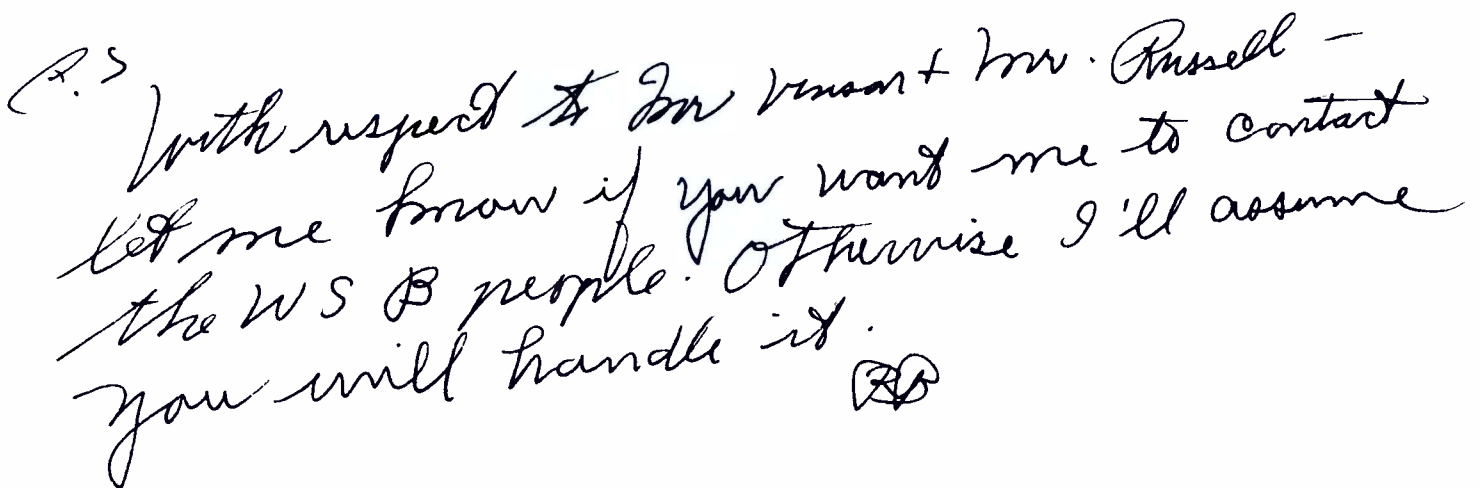 P.S
With respect to Mr Vinson + Mr. Russell -
let me know if you want me to contact
the WSB people. Otherwise I'll assume
you will handle it.
RB